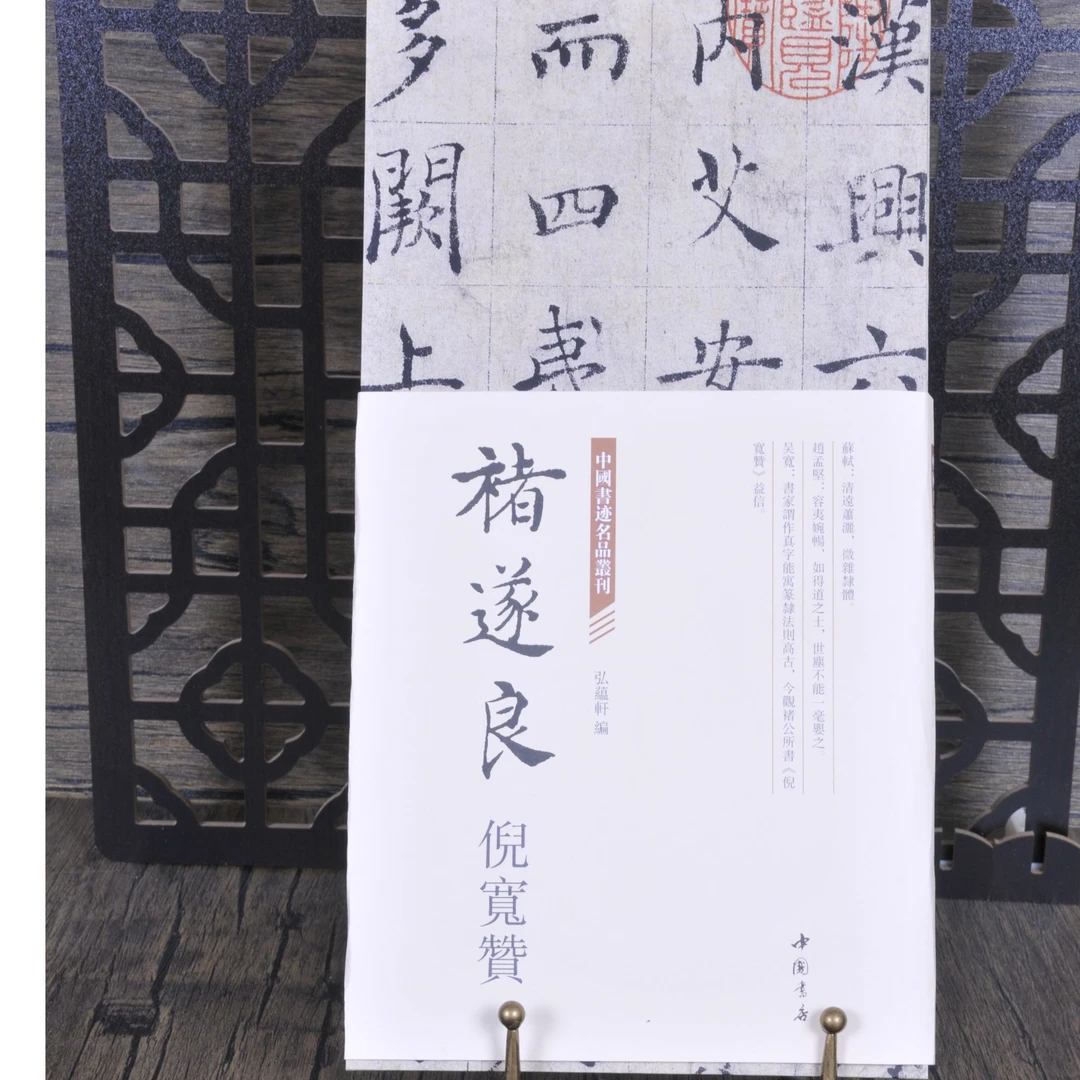 漢興六
内艾安
而四夷
多闕上
蘇軾：清遠蕭灑，微雜隸體。
趙孟堅：容夷婉暢，如得道之士，世塵不能一毫嬰之。
吴寬：書家謂作真字能寓篆隸法則高古，今觀褚公所書《倪
寬贊》益信。
中國書迹名品叢刊
弘蘊軒 编
褚遂良
倪寬贊
中國書店